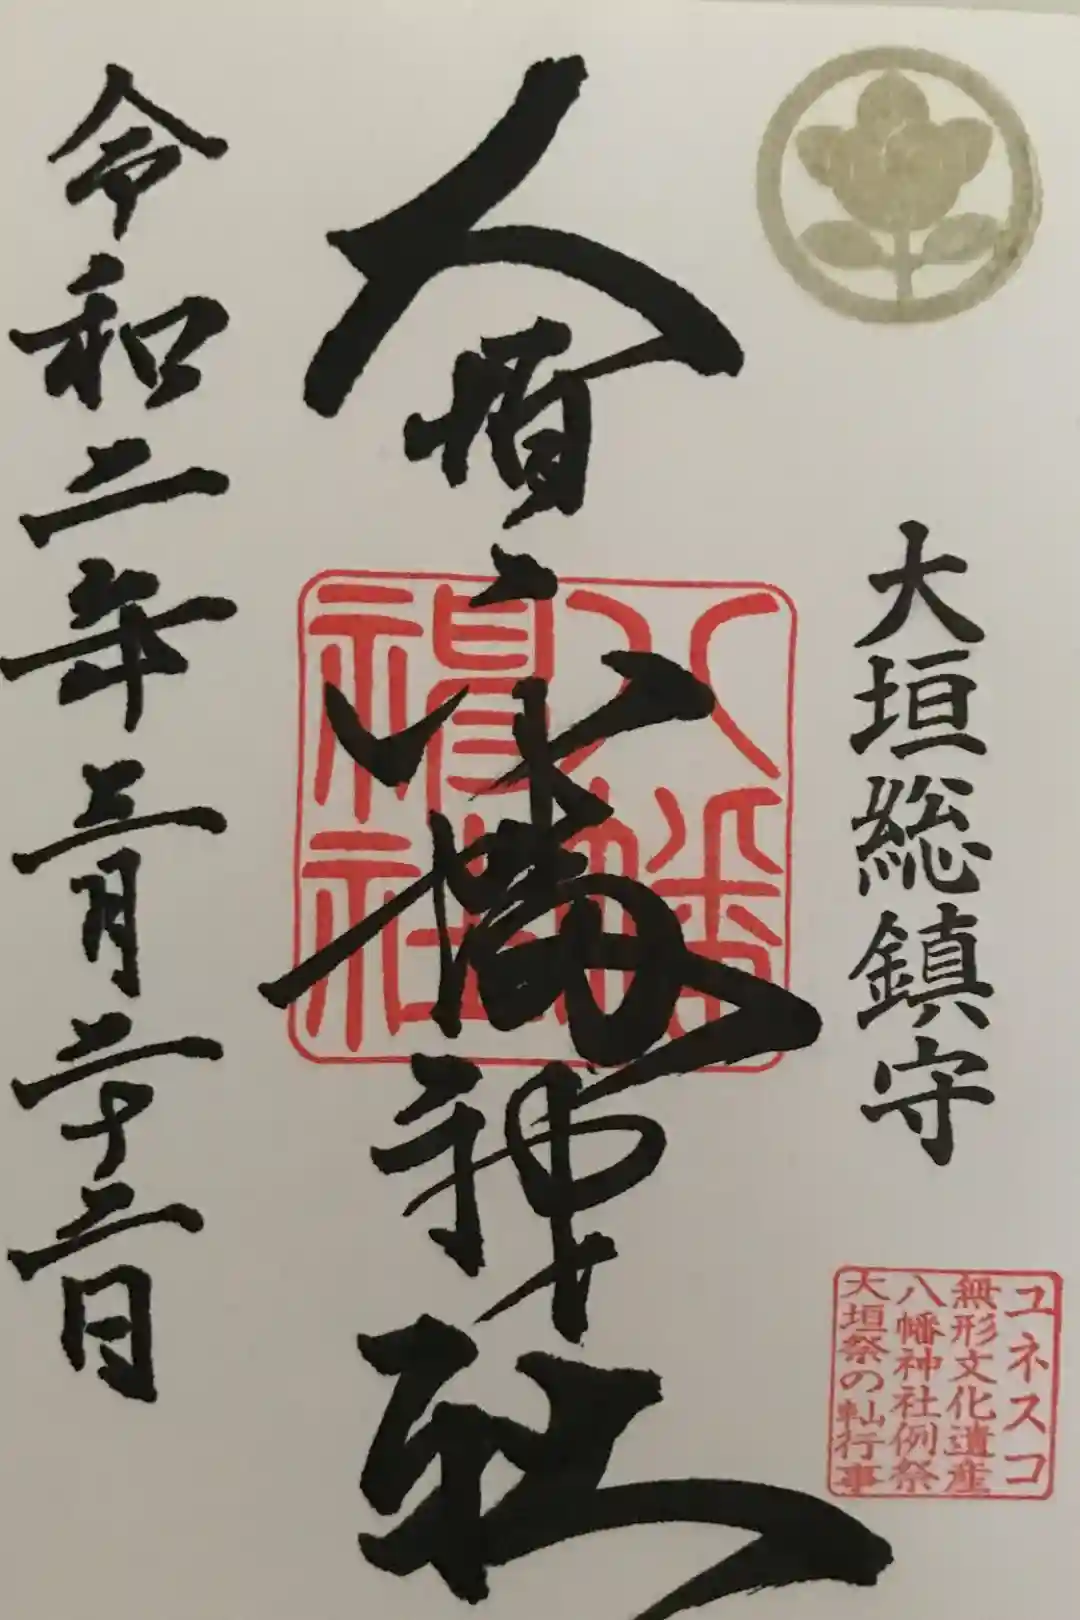 大垣総鎮守
ユネスコ
無形文化遺産
八幡神社例祭
大垣祭の軕行事
大垣八幡神社
八幡
神社
令和二年三月二十二日